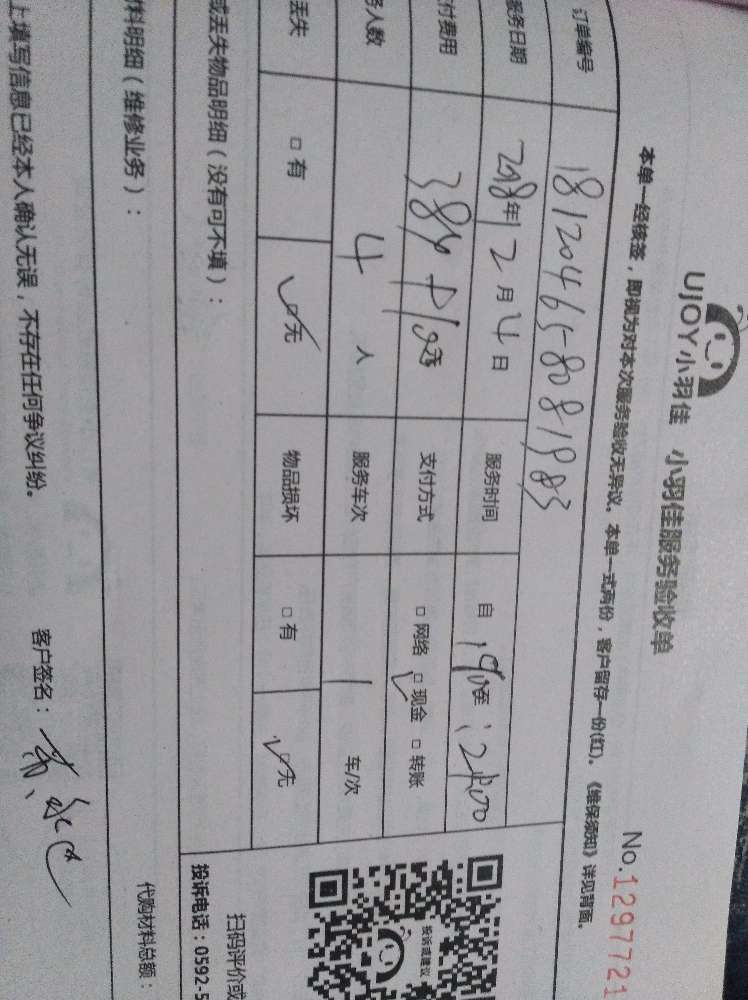 UJOY小羽佳 小羽佳服务验收单
No.1297721
本单一经核签，即视为对本次服务验收无异议。本单一式两份，客户留存一份(红)。《维保须知》详见背面。
订单编号 181204658081983
服务日期 2018年12月4日 服务时间 自 至
付费用 支付方式 □网络 □现金 □转账
务人数 4人 服务车次 1 车/次
丢失 □有 □无 物品损坏 □有 □无
或丢失物品明细（没有可不填）：
料明细（维修业务）：
投诉或建议
扫码评价或
投诉电话：0592-5
代购材料总额：
上填写信息已经本人确认无误，不存在任何争议纠纷。 客户签名：